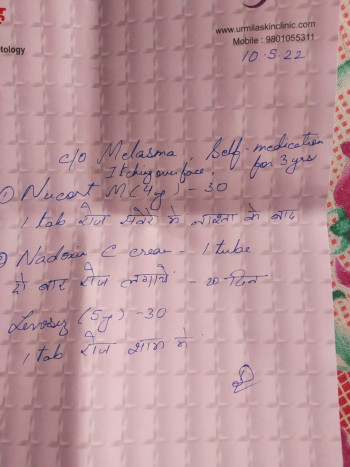 www.urmilaskinclinic.com
Mobile : 9801055311
tology
10.5.22
c/o Melasma. Self-medication
Itching over face. for 3 yrs
① Nucort M (4g) - 30
1 tab रोज सवेरे में नाश्ता के बाद
Nadoxin C cream - 1 tube
दो बार रोज लगायें - दिन
(5g) - 30
1 tab रोज शाम में